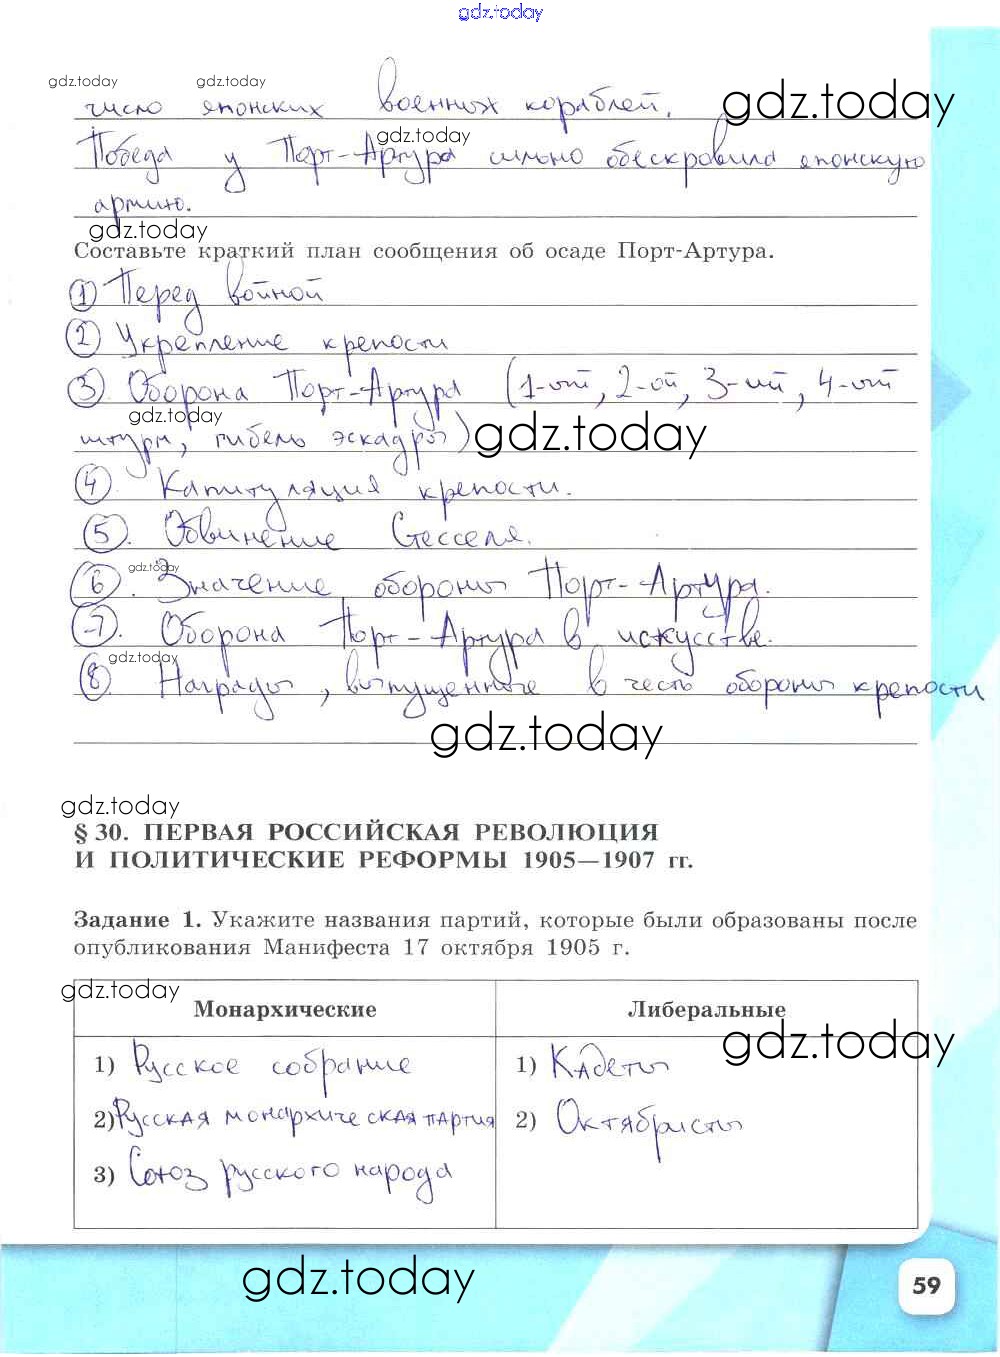 gdz.today
gdz.today gdz.today
число японских военных кораблей. gdz.today
gdz.today
Победа у Порт-Артура сильно обескровила японскую
армию.
gdz.today
Составьте краткий план сообщения об осаде Порт-Артура.
1) Перед войной
2) Укрепление крепости
3) Оборона Порт-Артура (1-ый, 2-ой, 3-ий, 4-ый
gdz.today
штурм, гибель эскадры) gdz.today
4) Капитуляция крепости.
5). Обвинение Стесселя.
gdz.today
6). Значение обороны Порт-Артура.
7). Оборона Порт-Артура в искусстве.
gdz.today
8) Награды, выпущенные в честь обороны крепости
gdz.today
gdz.today
§ 30. ПЕРВАЯ РОССИЙСКАЯ РЕВОЛЮЦИЯ
И ПОЛИТИЧЕСКИЕ РЕФОРМЫ 1905—1907 гг.
Задание 1. Укажите названия партий, которые были образованы после
опубликования Манифеста 17 октября 1905 г.
gdz.today
Монархические Либеральные
gdz.today
1) Русское собрание 1) Кадеты
2) Русская монархическая партия 2) Октябристы
3) Союз русского народа
gdz.today
59